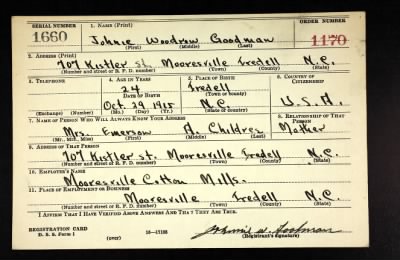 SERIAL NUMBER 1. NAME (Print) ORDER NUMBER
1660 Johnie Woodrow Goodman 1170
(First) (Middle) (Last)
2. ADDRESS (Print)
707 Kistler st. Mooresville Iredell N.C.
(Number and street or R. F. D. number) (Town) (County) (State)
3. TELEPHONE 4. AGE IN YEARS 5. PLACE OF BIRTH 6. COUNTRY OF CITIZENSHIP
24 Iredell
DATE OF BIRTH (Town or county)
Oct. 29 1915 N.C. U.S.A.
(Exchange) (Number) (Mo.) (Day) (Yr.) (State or country)
7. NAME OF PERSON WHO WILL ALWAYS KNOW YOUR ADDRESS 8. RELATIONSHIP OF THAT PERSON
Mrs. Emerson A. Childrez Mother
(Mr., Mrs., Miss) (First) (Middle) (Last)
9. ADDRESS OF THAT PERSON
707 Kistler st. Mooresville Iredell N.C.
(Number and street or R. F. D. number) (Town) (County) (State)
10. EMPLOYER'S NAME
Mooresville Cotton Mills.
11. PLACE OF EMPLOYMENT OR BUSINESS
Mooresville Iredell N.C.
(Number and street or R. F. D. number) (Town) (County) (State)
I AFFIRM THAT I HAVE VERIFIED ABOVE ANSWERS AND THAT THEY ARE TRUE.
REGISTRATION CARD Johnnie W. Goodman
D. S. S. Form 1 (over) 16—17105 (Registrant's signature)